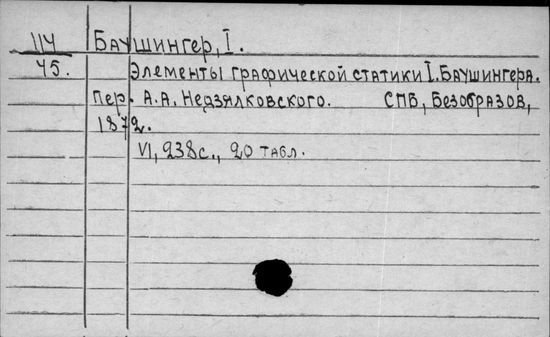 114 Баушингер, I.
45. Элементы графической статики I. Баушингера.
Пер. А.А. Недзялковского. СПБ, Безобразов,
1872.
VI, 238с., 20 табл.